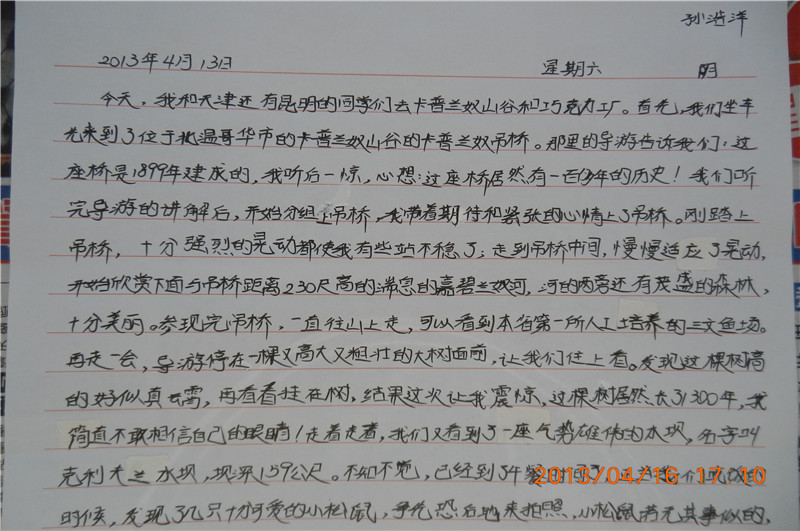 孙浩洋
2013年4月13日 星期六 阴
今天,我和天津还有昆明的同学们去卡普兰奴山谷和巧克力工厂。首先,我们坐车
先来到了位于北温哥华市的卡普兰奴山谷的卡普兰奴吊桥。那里的导游告诉我们:这
座桥是1899年建成的,我听后一惊,心想:这座桥居然有一百多年的历史!我们听
完导游的讲解后,开始分组上吊桥,我带着期待和紧张的心情上了吊桥。刚踏上
吊桥,十分强烈的晃动都使我有些站不稳了;走到吊桥中间,慢慢适应了晃动,
开始欣赏下面与吊桥距离230尺高的湍急的嘉碧兰奴河,河的两旁还有茂盛的森林,
十分美丽。参观完吊桥,一直往山上走,可以看到本省第一所人工培养的三文鱼场。
再走一会,导游停在一棵又高大又粗壮的大树面前,让我们往上看。发现这棵树高
的好似真云霄,再看看挂在树,结果这次让我震惊,这棵树居然长了1300年,我
简直不敢相信自己的眼睛!走着走着,我们又看到了一座气势雄伟的水坝,名字叫
克利夫兰水坝,坝深159公尺。不知不觉,已经到了午
2013/04/16 17:10
时候,发现了几只十分可爱的小松鼠,争先恐后地来拍照,小松鼠若无其事似的,